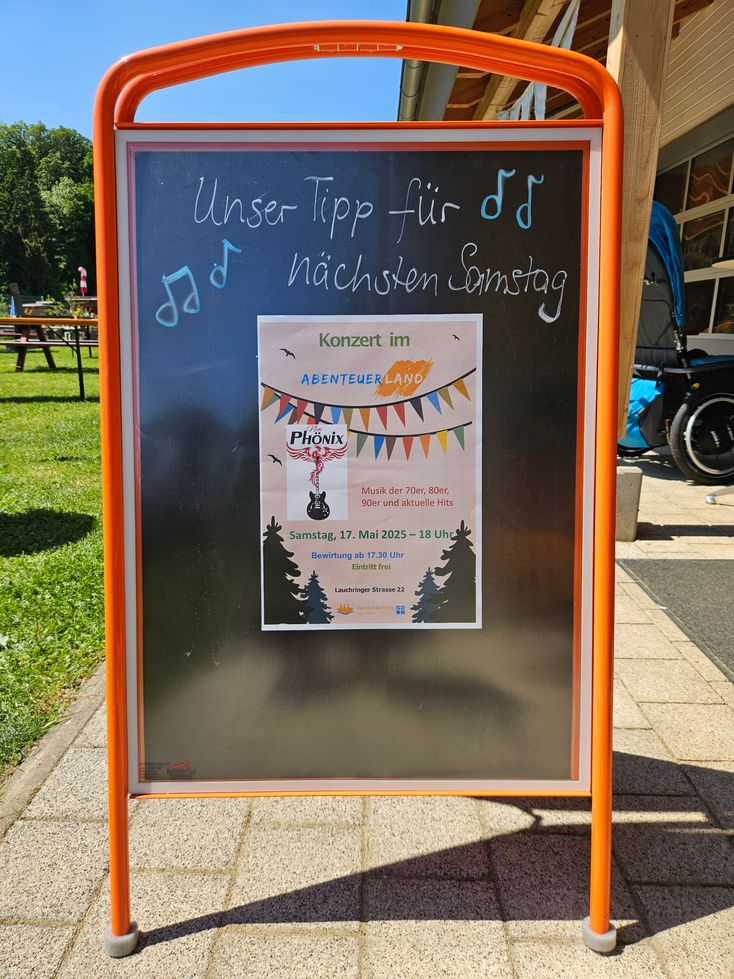 Unser Tipp für
nächsten Samstag
Konzert im
ABENTEUERLAND
New
PHÖNIX
Musik der 70er, 80er,
90er und aktuelle Hits
Samstag, 17. Mai 2025 – 18 Uhr
Bewirtung ab 17.30 Uhr
Eintritt frei
Lauchringer Strasse 22